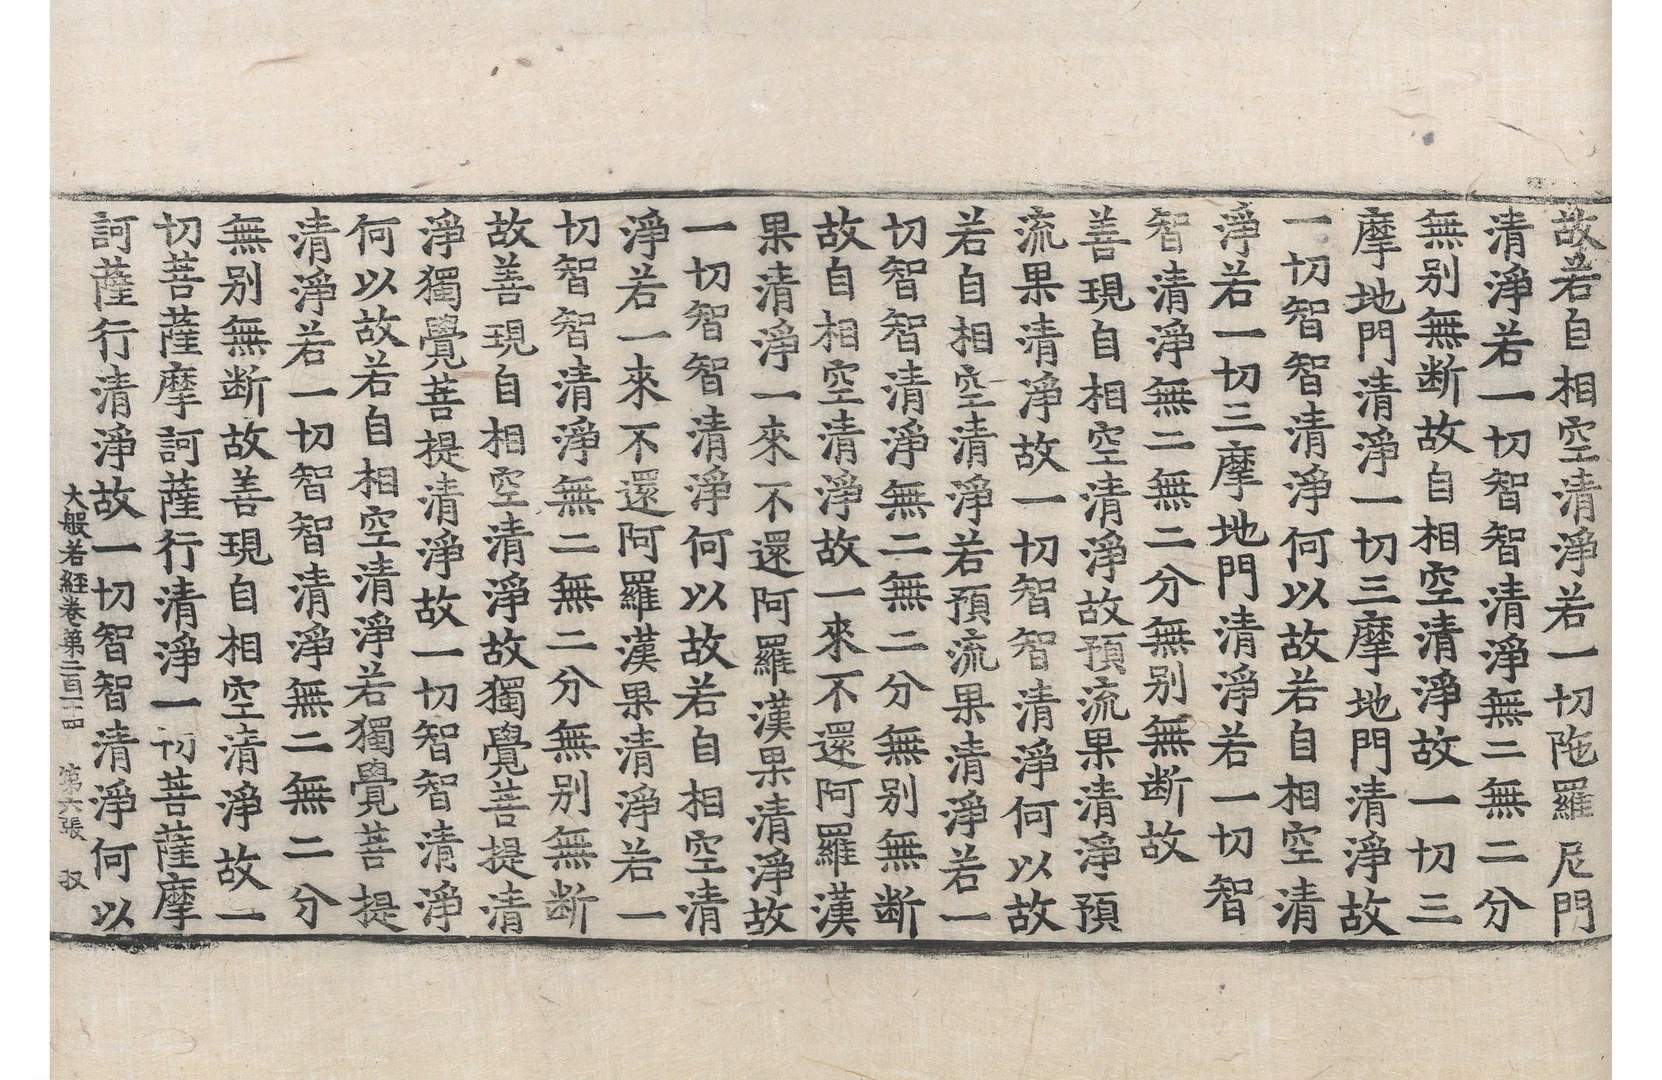 故若自相空清淨若一切陁羅尼門
清淨若一切智智清淨無二無二分
無别無断故自相空清淨故一切三
摩地門清淨一切三摩地門清淨故
一切智智清淨何以故若自相空清
淨若一切三摩地門清淨若一切智
智清淨無二無二分無别無断故
善現自相空清淨故預流果清淨預
流果清淨故一切智智清淨何以故
若自相空清淨若預流果清淨若一
切智智清淨無二無二分無别無断
故自相空清淨故一來不還阿羅漢
果清淨一來不還阿羅漢果清淨故
一切智智清淨何以故若自相空清
淨若一來不還阿羅漢果清淨若一
切智智清淨無二無二分無别無断
故善現自相空清淨故獨覺菩提清
淨獨覺菩提清淨故一切智智清淨
何以故若自相空清淨若獨覺菩提
清淨若一切智智清淨無二無二分
無别無断故善現自相空清淨故一
切菩薩摩訶薩行清淨一切菩薩摩
訶薩行清淨故一切智智清淨何以
大般若經卷第二百一四 第六張 収